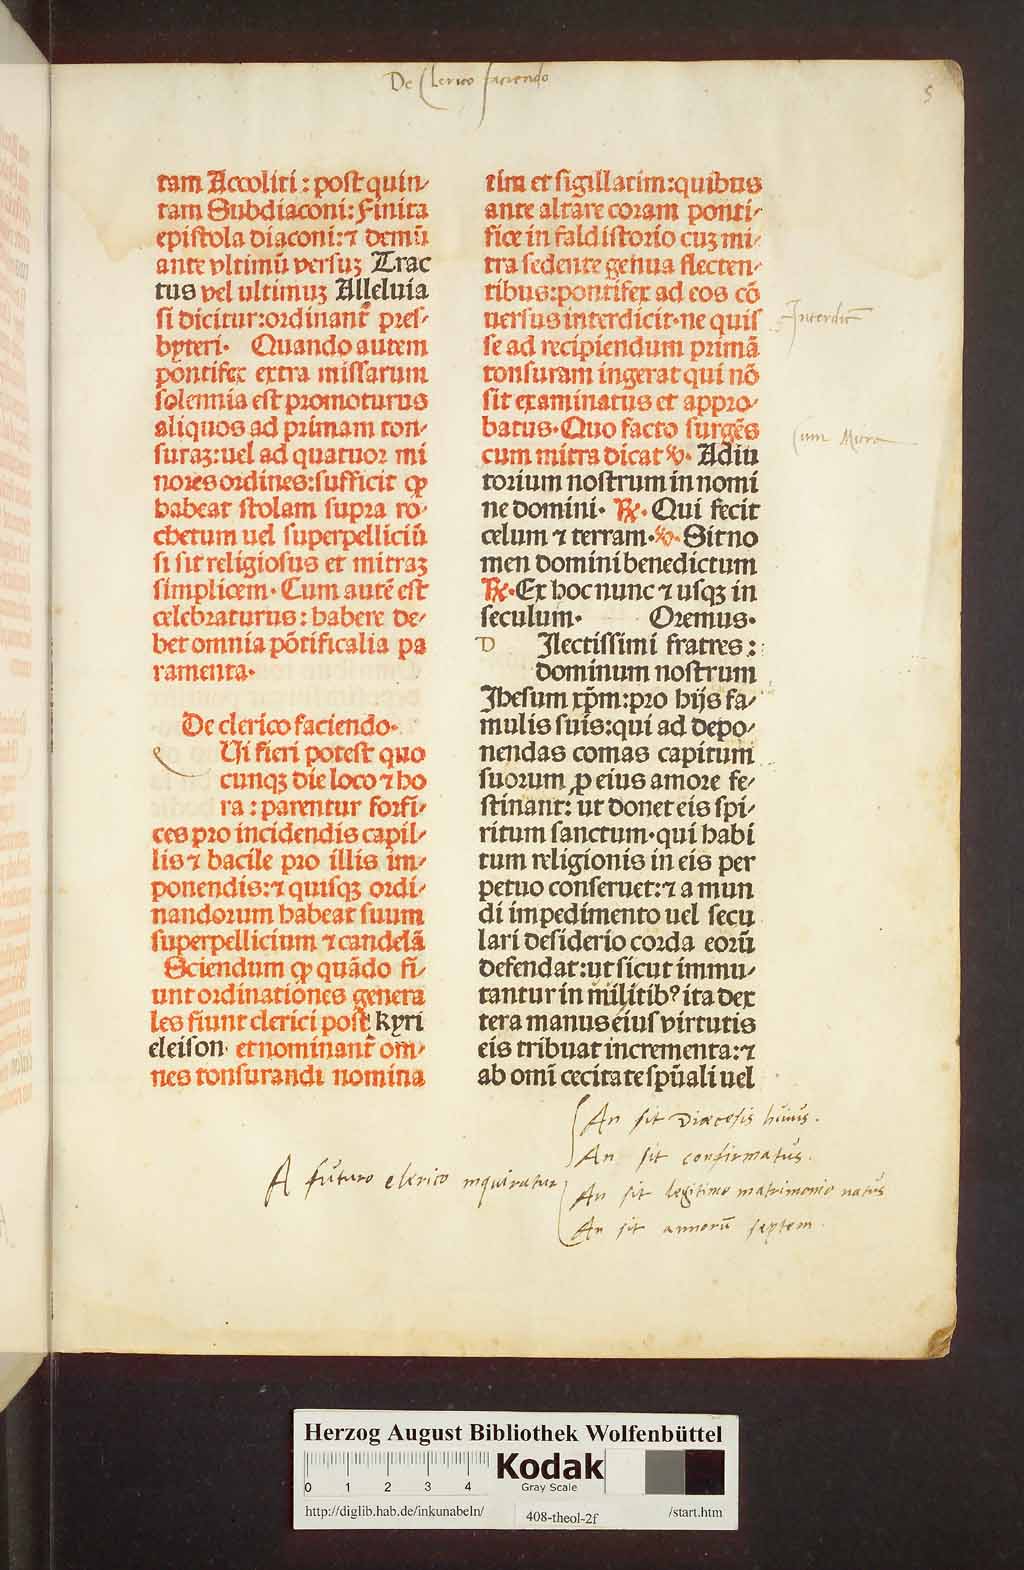 De Clerico faciendo
5
tam Accoliti : post quin-
tam Subdiaconi: Finita
epistola diaconi: ⁊ demū
ante vltimū versuꝫ Trac
tus vel ultimuꝫ Alleluia
si dicitur: ordinant᷑ pres-
byteri. Quando autem
pontifex extra missarum
solennia est promoturus
aliquos ad primam ton-
suraꝫ: uel ad quatuor mi
nores ordines: sufficit ꝙ
habeat stolam supra ro-
chetum uel superpelliciū
si sit religiosus et mitraꝫ
simplicem. Cum autē est
celebraturus: habere de-
bet omnia pōtificalia pa
ramenta.
De clerico faciendo.
Ui fieri potest quo
cunqꝫ die loco ⁊ ho
ra : parentur forfi-
ces pro incidendis capil-
lis ⁊ bacile pro illis im-
ponendis: ⁊ quisqꝫ ordi-
nandorum habeat suum
superpellicium ⁊ candelā
Sciendum ꝙ quādo fi-
unt ordinationes genera
les fiunt clerici post Kyri
eleison. et nominant᷑ om-
nes tonsurandi nomina
tim et sigillatim: quibus
ante altare coram ponti-
fice in faldistorio cuꝫ mi-
tra sedente genua flecten-
tibus: pontifex ad eos cō
uersus interdicit. ne quis
se ad recipiendum primā
tonsuram ingerat qui nō
sit examinatus et appro-
batus. Quo facto surgēs
cum mitra dicat ℣. Adiu
torium nostrum in nomi
ne domini. ℟. Qui fecit
celum ⁊ terram. ℣. Sit no
men domini benedictum
℟. Ex hoc nunc ⁊ usqꝫ in
seculum. Oremus.
D Ilectissimi fratres :
dominum nostrum
Jhesum xp̄m: pro hijs fa-
mulis suis: qui ad depo-
nendas comas capitum
suorum ꝓ eius amore fe-
stinant: ut donet eis spi-
ritum sanctum. qui habi
tum religionis in eis per
petuo conseruet: ⁊ a mun
di impedimento uel secu
lari desiderio corda eorū
defendat: ut sicut immu-
tantur in militibꝰ ita dex
tera manus eius virtutis
eis tribuat incrementa: ⁊
ab omī cecitate spūali uel
Interdict
Cum Mitra
A futuro clerico inquiratur
An sit Diœcesis huius.
An sit confirmatus.
An sit legitimo matrimonio natus
An sit annorū septem.
Herzog August Bibliothek Wolfenbüttel
0 1 2 3 4
Kodak
Gray Scale
http://diglib.hab.de/inkunabeln/ 408-theol-2f /start.htm